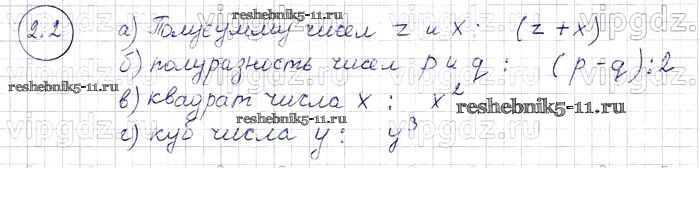 2.2 а) Полусумму чисел z и x : (z+x)
б) полуразность чисел p и q : (p-q):2
в) квадрат числа x : x²
г) куб числа y : y³
reshebnik5-11.ru
reshebnik5-11.ru
reshebnik5-11.ru
reshebnik5-11.ru